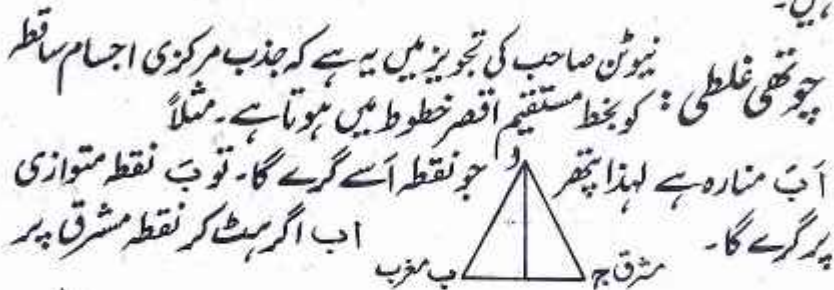 ہیں۔
چوتھی غلطی : نیوٹن صاحب کی تجویز میں یہ ہے کہ جذب مرکزی اجسام ساقطہ
کو بخط مستقیم اقصر خطوط میں ہوتا ہے۔ مثلاً
اَبَ منارہ ہے لہذا پتھر د جو نقطہ اَ سے گرے گا۔ تو بَ نقطہ متوازی
پر گرے گا۔ اب اگر ہٹ کر نقطہ مشرق پر
مشرق ج ب مغرب